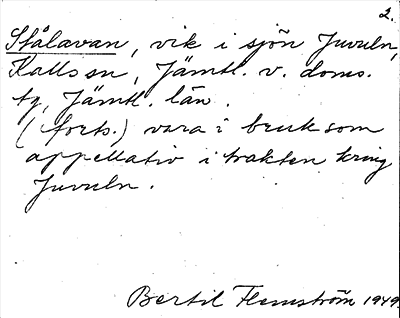 2.
Stålavan, vik i sjön Juvuln,
Kalls sn, Jämtl. v. doms.
tg, Jämtl. län.
(forts.) vara i bruk som
appellativ i trakten kring
Juvuln.
Bertil Flemström 1949